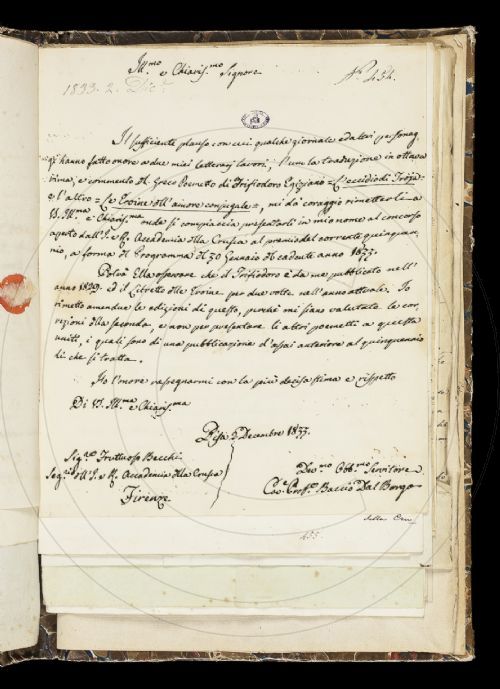 Ill.mo e Chiaris.mo Signore
N.o 454.
1833. 2. Dic.e
Il sufficiente plauso con cui qualche giornale ed altri personag
gi hanno fatto onore a due miei letterarj lavori, l'uno la traduzione in ottava
rima, e commento del Greco Poemetto di Trifiodoro Egiziano = L'eccidio di Troja =
e l'altro = Le Eroine dell'amore conjugale =, mi dà coraggio rimetterli a
V. Ill.ma e Chiaris.ma onde si compiaccia presentarli in mio nome al concorso
aperto dall'I. e R. Accademia della Crusca al premio del corrente quinquen
nio, a forma del Programma del 30 Gennaio del cadente anno 1833.
Potrà Ella osservare che il Trifiodoro è da me pubblicato nell'
anno 1829. ed il libretto delle Eroine per due volte nell'anno attuale. Io
rimetto amendue le edizioni di questo, perché mi siano valutate le cor
rezioni della seconda, e non per presentare le altri poemetti a questa
uniti, i quali sono di una pubblicazione d'assai anteriore al quinquennio
di che si tratta.
Ho l'onore rassegnarmi con la più decisa stima e rispetto
Di V. Ill.ma e Chiaris.ma
Pisa 2 Decembre 1833.
Sig.re Fruttuoso Becchi
Seg.rio dell'I. e R. Accademia della Crusca
Firenze
Dev.mo Obb.mo Servitore
Cav.e Prof.e Baccio Dal Borgo
della Cru
455.